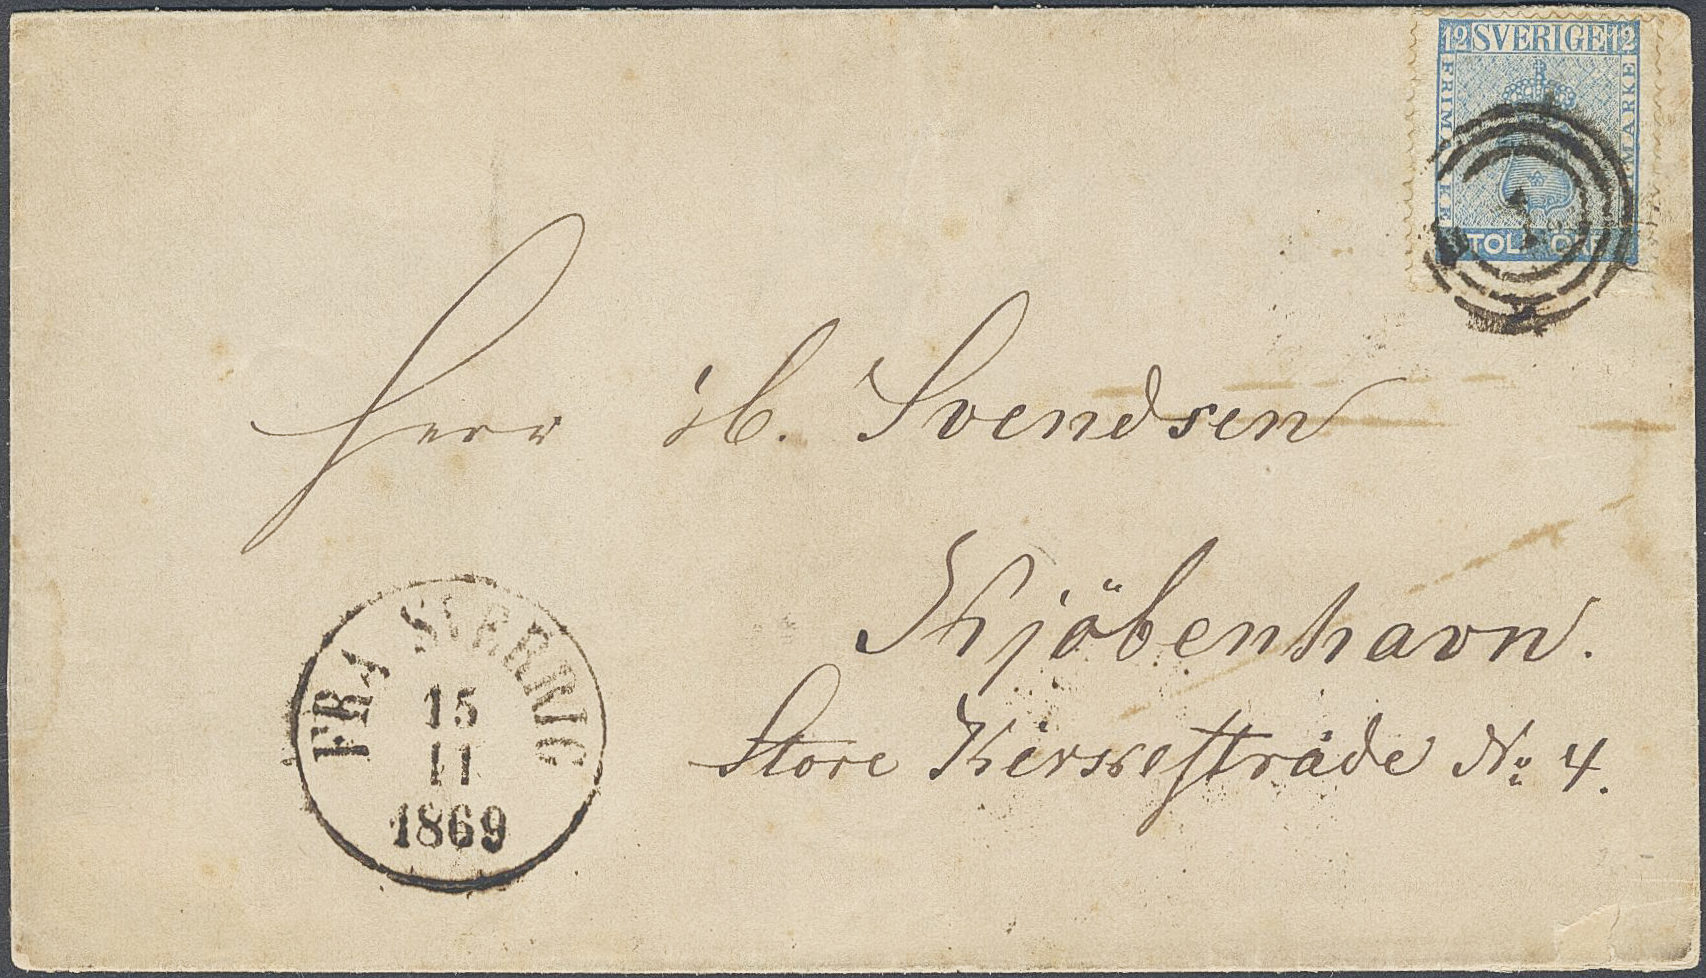 12 SVERIGE 12
FRIMÄRKE
FRIMÄRKE
TOLF ÖRE
1
Herr H. Svendsen
Kjöbenhavn.
Store Kirkestråde No 4.
FRA SVERRIG
15
11
1869